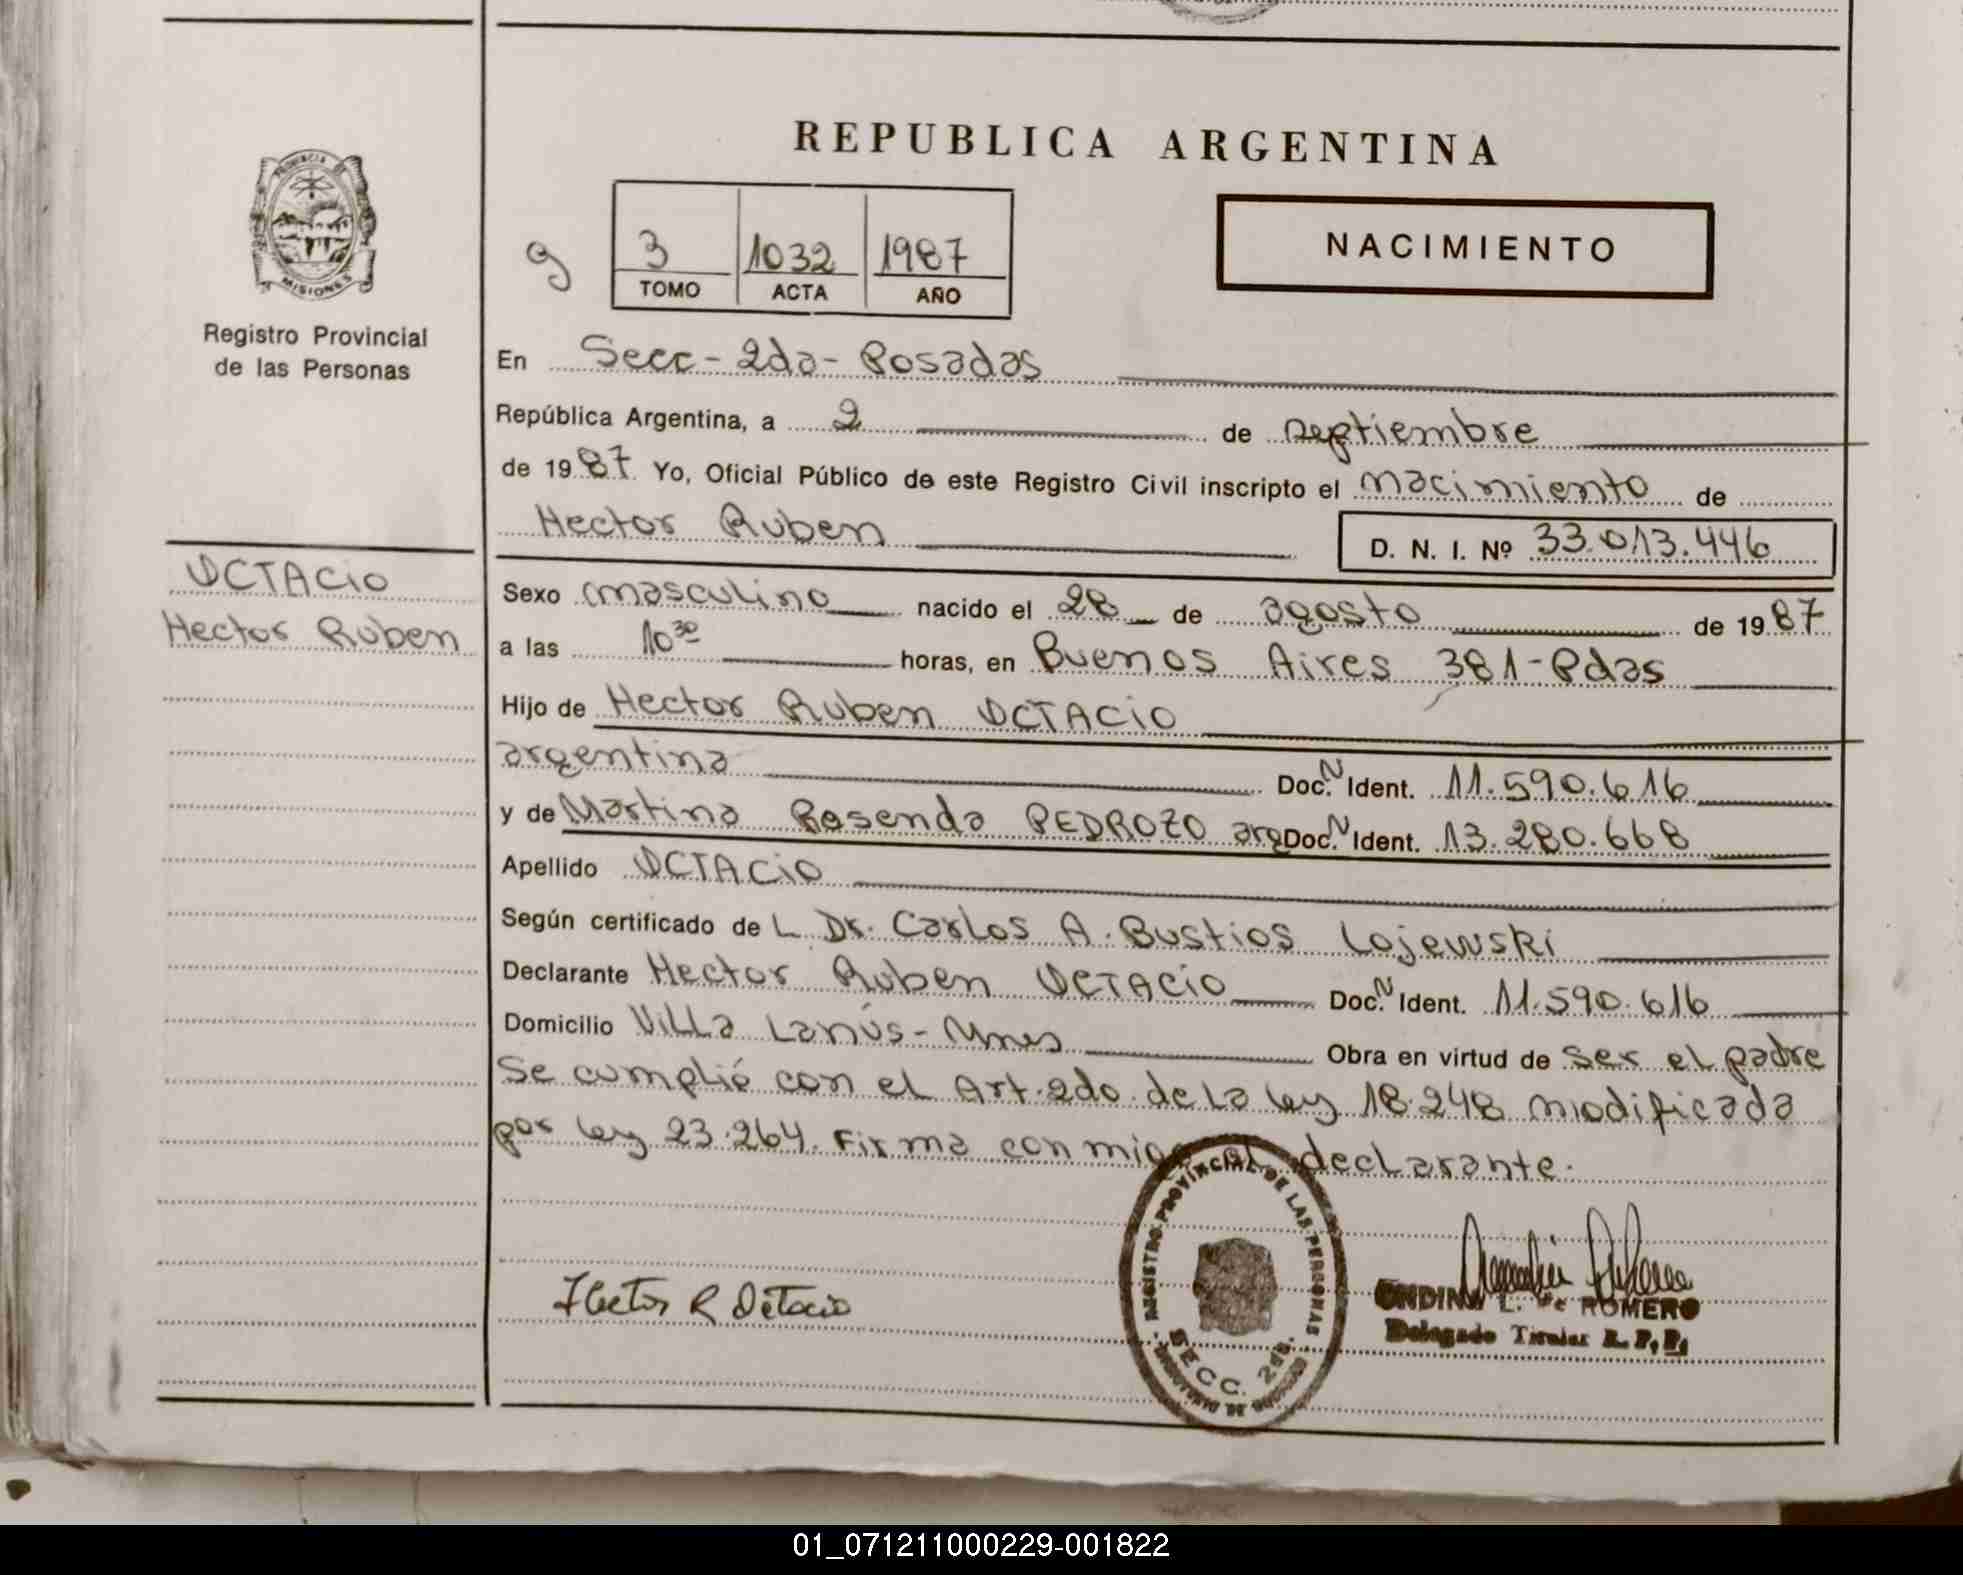 REPUBLICA ARGENTINA
PROVINCIA
MISIONES
Registro Provincial
de las Personas
9
3 1032 1987
TOMO ACTA AÑO
NACIMIENTO
En Secc-2da-Posadas
República Argentina, a 2 de septiembre
de 1987 Yo, Oficial Público de este Registro Civil inscripto el nacimiento de
Hector Ruben D. N. I. Nº 33.013.446
OCTACiO
Hector Ruben
Sexo masculino nacido el 28 de agosto de 1987
a las 10 30 horas, en Buenos Aires 381-Pdas
Hijo de Hector Ruben OCTACiO
argentina Doc. N Ident. 11.590.616
y de Martina Rosenda PEDROZO arg Doc. N Ident. 13.280.668
Apellido OCTACiO
Según certificado de L Dr. Carlos A. Bustios Lojewski
Declarante Hector Ruben OCTACiO Doc. N Ident. 11.590.616
Domicilio Villa Lanús-Mnes Obra en virtud de ser el padre
Se cumplió con el Art. 2do de la ley 18.248 modificada
por ley 23.264. Firma conmigo el declarante.
REGISTRO PROVINCIAL DE LAS PERSONAS
SECC. 2da.
Hector R Octacio
ONDINA L. de ROMERO
Delegado Titular R. P. P.
01_071211000229-001822